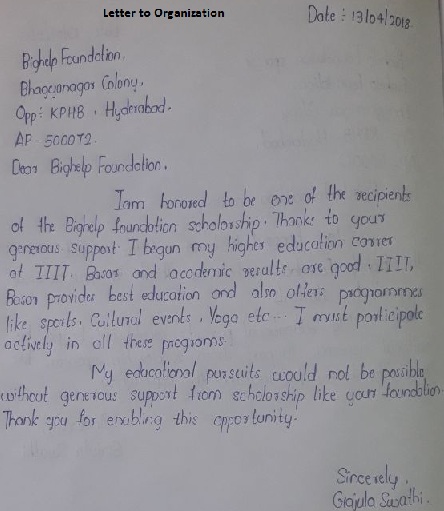 Letter to Organization
Date : 13/04/2018.
Bighelp Foundation.
Bhagyanagar Colony.
Opp: KPHB, Hyderabad.
AP. 500072.
Dear Bighelp Foundation.
I am honored to be one of the recipients
of the Bighelp foundation scholarship. Thanks to your
generous support. I began my higher education carrer
at IIIT. Basar and academic results are good. IIIT,
Basar provides best education and also offers programmes
like sports. Cultural events, Yoga etc... I must participate
actively in all these programs.
My educational pursuits would not be possible
without generous support from scholorship like your foundation
Thank you for enabling this opportunity.
Sincerely,
Gajula Swathi.